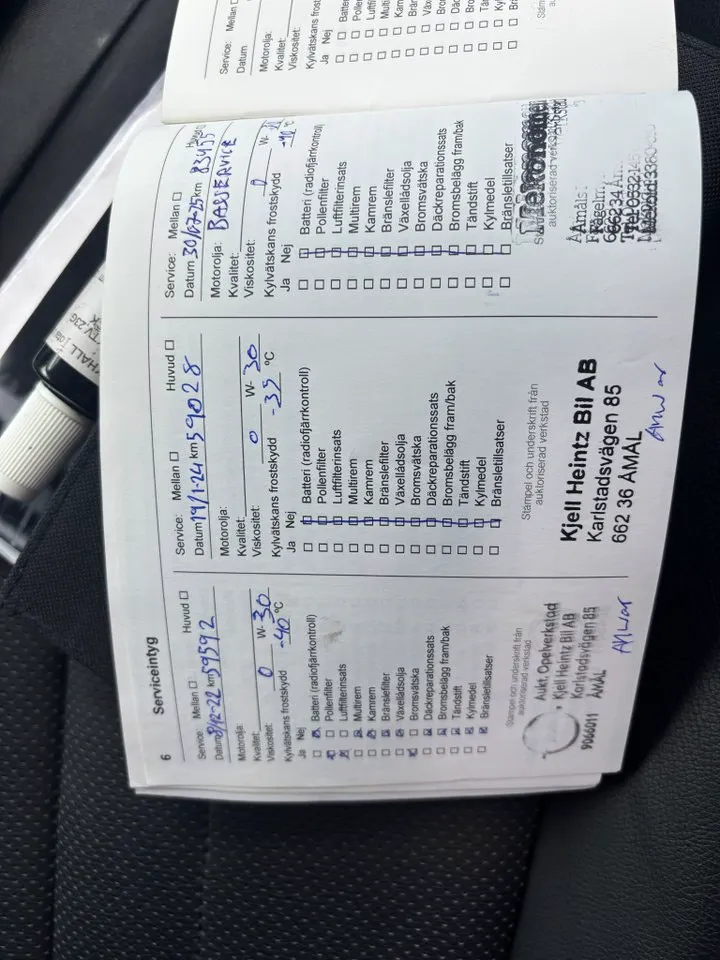 6 Serviceintyg
Service: Mellan Huvud
Datum 8/12-22 km 59592
Motorolja:
Kvalitet:
Viskositet: 0 W- 30
Kylvätskans frostskydd -40 °C
Ja Nej
Batteri (radiofjärrkontroll)
Pollenfilter
Luftfilterinsats
Multirem
Kamrem
Bränslefilter
Växellådsolja
Bromsvätska
Däckreparationssats
Bromsbelägg fram/bak
Tändstift
Kylmedel
Bränsletillsatser
Stämpel och underskrift från
auktoriserad verkstad
Aukt. Opelverkstad
Kjell Heintz Bil AB
Karlstadsvägen 85
9066011 ÅMÅL
Anwar
Service: Mellan Huvud
Datum 19/1-24 km 59028
Motorolja:
Kvalitet:
Viskositet: 0 W- 30
Kylvätskans frostskydd -35 °C
Ja Nej
Batteri (radiofjärrkontroll)
Pollenfilter
Luftfilterinsats
Multirem
Kamrem
Bränslefilter
Växellådsolja
Bromsvätska
Däckreparationssats
Bromsbelägg fram/bak
Tändstift
Kylmedel
Bränsletillsatser
Stämpel och underskrift från
auktoriserad verkstad
Kjell Heintz Bil AB
Karlstadsvägen 85
662 36 ÅMÅL
Anwar
Service: Mellan
Datum 30/07-25 km
Motorolja: BASSERVICE
Kvalitet:
Viskositet: 0 W-
Kylvätskans frostskydd °C
Ja Nej
Batteri (radiofjärrkontroll)
Pollenfilter
Luftfilterinsats
Multirem
Kamrem
Bränslefilter
Växellådsolja
Bromsvätska
Däckreparationssats
Bromsbelägg fram/bak
Tändstift
Kylmedel
Bränsletillsatser
auktoriserad verkstad
Service: Mellan
Datum
Motorolja:
Kvalitet:
Viskositet:
Kylvätskans frost
Ja Nej